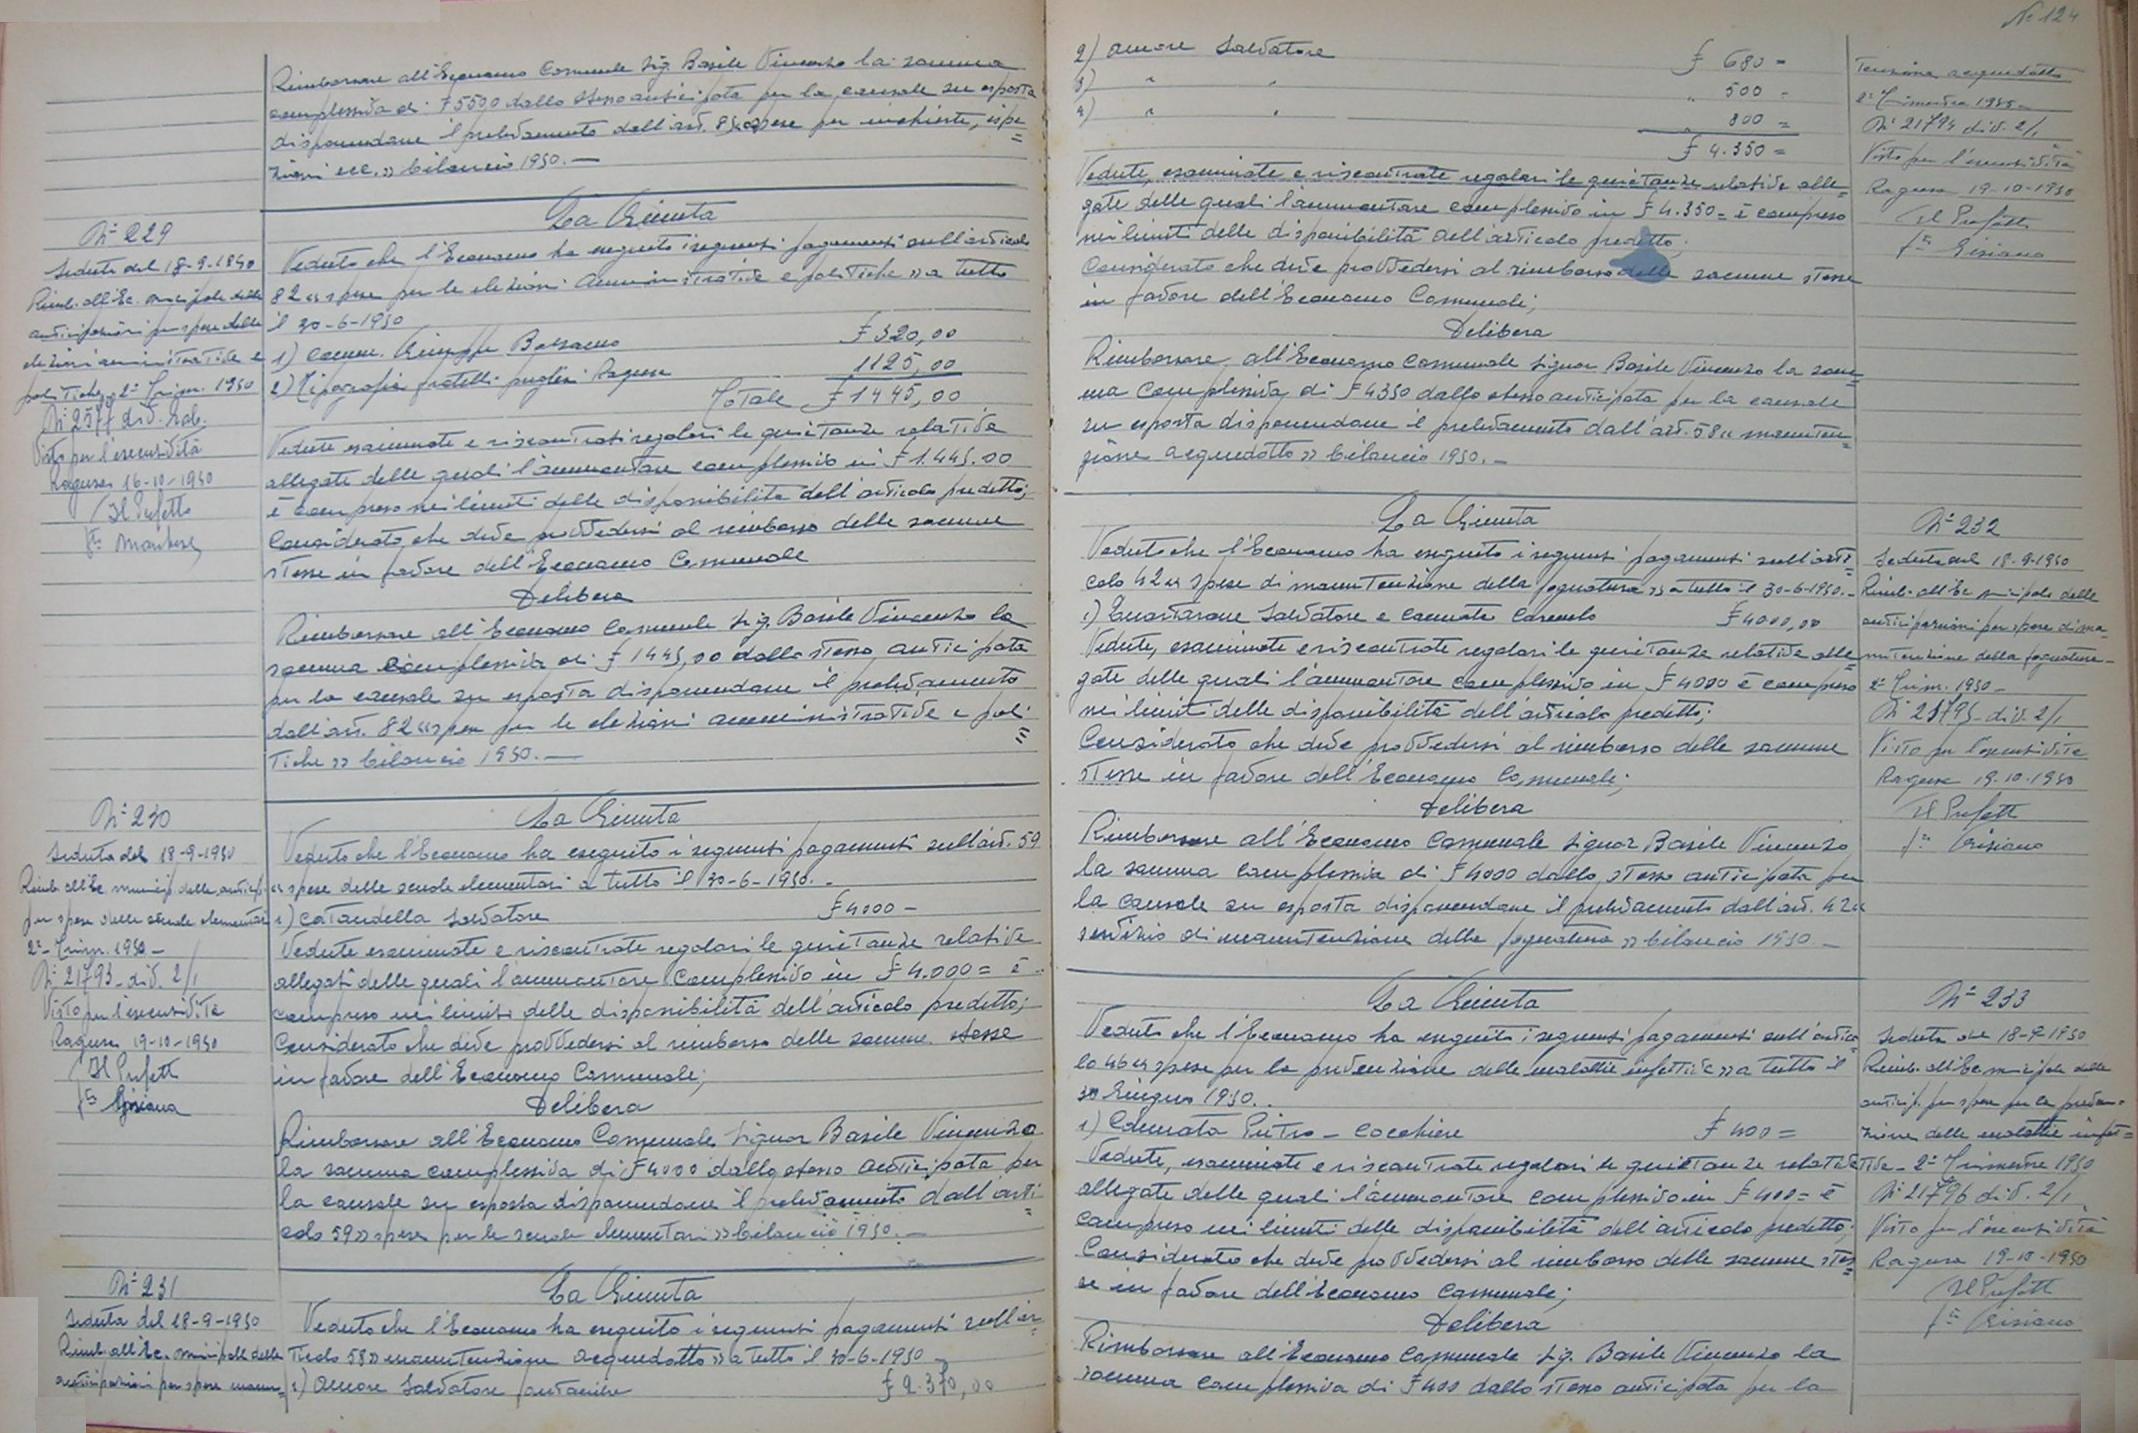 Rimborsare all'Economo Comunale Sig. Basile Vincenzo la somma
complessiva di £ 5500 dallo stesso anticipata per la causale su esposta
disponendone il prelevamento dall'art. 85 « spese per inchieste, ispe=
zioni ecc. » bilancio 1950. —
N° 229
Seduta del 18-9-1950
Rimb. all'Ec. municipale delle
anticipazioni per spese delle
elezioni amministrative e
politiche, 2° Trim. 1950
N° 2577 div. Rab.
Visto per l'esecutività
Ragusa 16-10-1950
Il Prefetto
f.to
La Giunta
Veduto che l'Economo ha eseguito i seguenti pagamenti sull'articolo
82 « spese per le elezioni amministrative e politiche » a tutto
il 30-6-1950
1) Comm. Giuseppe £ 320,00
2) Tipografia fratelli Ragusa 1125,00
Totale £ 1445,00
Vedute esaminate e riscontrati regolari le quietanze relative
allegate delle quali l'ammontare complessivo in £ 1.445.00
è compreso nei limiti delle disponibilità dell'articolo predetto;
Considerato che deve provvedersi al rimborso delle somme
stesse in favore dell'Economo Comunale
Delibera
Rimborsare all'Economo Comunale Sig. Basile Vincenzo la
somma complessiva di £ 1445,00 dallo stesso anticipata
per la causale su esposta disponendone il prelevamento
dall'art. 82 « spese per le elezioni amministrative e poli=
tiche » bilancio 1950. —
N° 230
Seduta del 18-9-1950
Rimb. all'Ec. municip. delle anticip.
per spese delle scuole elementari
2° Trim. 1950 —
N° 21793 - div. 2/1
Visto per l'esecutività
Ragusa 19-10-1950
Il Prefetto
f.to
La Giunta
Veduto che l'Economo ha eseguito i seguenti pagamenti sull'art. 59
« spese delle scuole elementari a tutto il 30-6-1950. —
1) Catandella Salvatore £ 4000 —
Vedute esaminate e riscontrate regolari le quietanze relative
allegati delle quali l'ammontare complessivo in £ 4.000 = è
compreso nei limiti delle disponibilità dell'articolo predetto;
Considerato che deve provvedersi al rimborso delle somme stesse
in favore dell'Economo Comunale;
Delibera
Rimborsare all'Economo Comunale Signor Basile Vincenzo
la somma complessiva di £ 4000 dallo stesso anticipata per
la causale su esposta disponendone il prelevamento dall'arti=
colo 59 » spese per le scuole elementari » bilancio 1950. —
N° 231
Seduta del 18-9-1950
Rimb. all'Ec. municipale delle
anticipazioni per spese manu-
La Giunta
Veduto che l'Economo ha eseguito i seguenti pagamenti sull'ar=
ticolo 58 » manutenzione acquedotto » a tutto il 30-6-1950 —
1) Amore Salvatore fontaniere £ 2.370,00
N° 124
2) Amore Salvatore £ 680 =
3) " " " 500 -
4) " " " 800 =
£ 4.350 =
Vedute, esaminate e riscontrate regolari le quietanze relative alle=
gate delle quali l'ammontare complessivo in £ 4.350 = è compreso
nei limiti delle disponibilità dell'articolo predetto;
Considerato che deve provvedersi al rimborso delle somme stesse
in favore dell'Economo Comunale;
Delibera
Rimborsare all'Economo Comunale Signor Basile Vincenzo la som=
ma complessiva di £ 4350 dallo stesso anticipata per la causale
su esposta disponendone il prelevamento dall'art. 58 « manuten=
zione acquedotto » bilancio 1950. —
tenzione acquedotto
2° Trimestre 1950 —
N° 21794 div. 2/1
Visto per l'esecutività
Ragusa 19-10-1950
Il Prefetto
f.to
La Giunta
Veduto che l'Economo ha eseguito i seguenti pagamenti sull'arti=
colo 42 « spese di manutenzione della fognatura » a tutto il 30-6-1950. —
1) Quartarone Salvatore e Cannata Carmelo £ 4000,00
Vedute, esaminate e riscontrate regolari le quietanze relative alle=
gate delle quali l'ammontare complessivo in £ 4000 è compreso
nei limiti delle disponibilità dell'articolo predetto;
Considerato che deve provvedersi al rimborso delle somme
stesse in favore dell'Economo Comunale;
Delibera
Rimborsare all'Economo Comunale Signor Basile Vincenzo
la somma complessiva di £ 4000 dallo stesso anticipata per
la causale su esposta disponendone il prelevamento dall'art. 42 «
servizio di manutenzione della fognatura » bilancio 1950 —
N° 232
Seduta del 18-9-1950
Rimb. all'Ec. municipale delle
anticipazioni per spese di ma-
nutenzione della fognatura —
2° Trim. 1950 —
N° 21795 - div. 2/1
Visto per l'esecutività
Ragusa 19-10-1950
Il Prefetto
f.to
La Giunta
Veduto che l'Economo ha eseguito i seguenti pagamenti sull'artico=
lo 46 « spese per la prevenzione delle malattie infettive » a tutto il
30 Giugno 1950. —
1) Pietro — Cocchiere £ 400 =
Vedute, esaminate e riscontrate regolari le quietanze relative
allegate delle quali l'ammontare complessivo in £ 400 = è
compreso nei limiti delle disponibilità dell'articolo predetto;
Considerato che deve provvedersi al rimborso delle somme stes=
se in favore dell'Economo Comunale;
Delibera
Rimborsare all'Economo Comunale Sig. Basile Vincenzo la
somma complessiva di £ 400 dallo stesso anticipata per la
N° 233
Seduta del 18-9-1950
Rimb. all'Ec. municipale delle
anticip. per spese per la preven=
zione delle malattie infet=
tive — 2° Trimestre 1950
N° 21796 div. 2/1
Visto per l'esecutività
Ragusa 19-10-1950
Il Prefetto
f.to